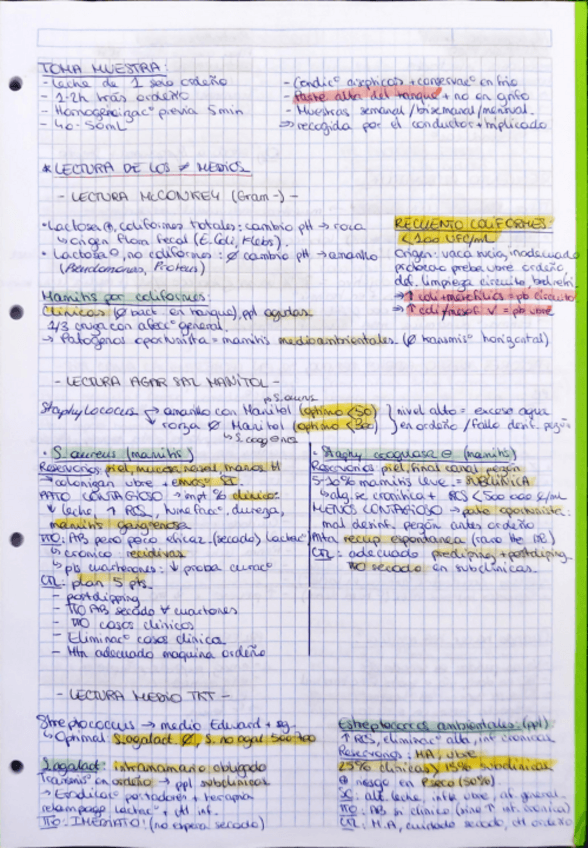 TOMA MUESTRA:
- Leche de 1 solo ordeño
- 1-2h tras ordeño
- Homogeneizac° previa 5min
- 40-50mL
- Condic° asepticas + conservac° en frio
- Parte alta del tanque + no en grifo
- Muestras semanal / bisemanal / mensual.
⇒ recogida por el conductor + triplicado
* LECTURA DE LOS ≠ MEDIOS
- LECTURA McCONKEY (Gram -) -
• Lactosa ⊕, coliformes totales: cambio pH → rosa
↳ origen flora fecal (E.Coli, Klebs).
• Lactosa ⊖, no coliformes: Ø cambio pH → amarillo
(Pseudomonas, Proteus)
RECUENTO COLIFORMES:
< 100 UFC/mL
Origen: vaca sucia, inadecuado
protocolo preparac ubre ordeño,
def. limpieza circuito,
⇒ ↑ coli + mesofilos = pb circuito
⇒ ↑ coli / mesof. V = pb ubre
Mamitis por coliformes:
Clinicas (Ø bact en tanque), ppl agudas.
1/3 cursa con afecc° general.
→ Patogenos oportunista = mamitis medioambientales. (Ø transmis° horizontal)
- LECTURA AGAR SAL MANITOL -
↗ S. aureus
Staphylococcus → amarillo con Manitol (optimo <50) } nivel alto = exceso agua
rosa Ø Manitol (optimo <300) } en ordeño / fallo desinf. pezón
↳ S. coag ⊖ nos
• S. aureus (mamitis)
Reservorios piel, mucosa nasal, manos H
→ colonizan ubre + emos° ST.
PATO CONTAGIOSO → impt % clinicas
↓ leche, ↑ RCS, tumefrac°, dureza,
mamitis gangrenosa
TTO: AB pero poco eficaz. (secado) Lactac°
↳ cronico: recidivas
↳ pb cuarterones: ↓ proba curac°
CTL: plan 5 pts.
- postdipping
- TTO AB secado ∀ cuarterones
- TTO casos clinicos
- Eliminac° casos clinica
- Mtn adecuado maquina ordeño
• Staphy coagulasa ⊖ (mamitis)
Reservorios piel, final canal pezón
5-10% mamitis leve = SUBCLINICA
↳ alg. se cronifica + RCS < 500 000 c/mL
MENOS CONTAGIOSO → pato oportunista:
mal desinf. pezón antes ordeño
Alta recup espontanea (raro tto AB)
CTL: adecuado predipping + postdiping.
TTO secado en subclinicas.
- LECTURA MEDIO TKT -
Streptococcus → medio Edward + sg.
↳ Optimal: S.agalact. Ø, S. no agal 500-700
S.agalact: intramamario obligado
Transmis° en ordeño → ppl subclinicas
→ Erradicac° portadores + terapia
relampago lactac° + ctl inf.
TTO: INMEDIATO! (no espera secado)
Estreptococos ambientales: (ppl)
↑ RCS, eliminac° alta, inf cronicas
Reservorios: MA, ubre
25% clinicas > 15% subclinicas
⊕ riesgo en P.seco (50%)
SC: alt. leche, infla ubre, af. general.
TTO: AB si clinica (sino ↑ inf. cronica)
CTL: M.A, cuidado secado, ctl ordeño